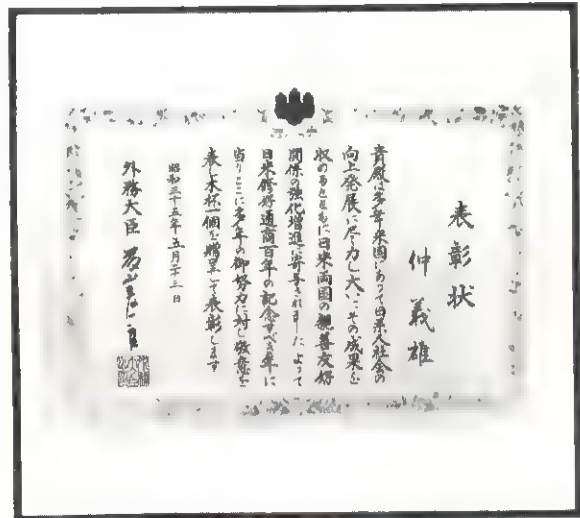 表彰状
仲義雄
貴殿は多年米国にあつて日系人社会の
向上発展に尽力し大いにその成果を
収めるとともに日米両国の親善友好
関係の強化増進に寄与されました よつて
日米修好通商百年の記念すべき年に
当りここに多年の御努力に対し敬意を
表し木杯一個を贈呈して表彰します
昭和三十五年五月二十三日
外務大臣 藤山愛一郎